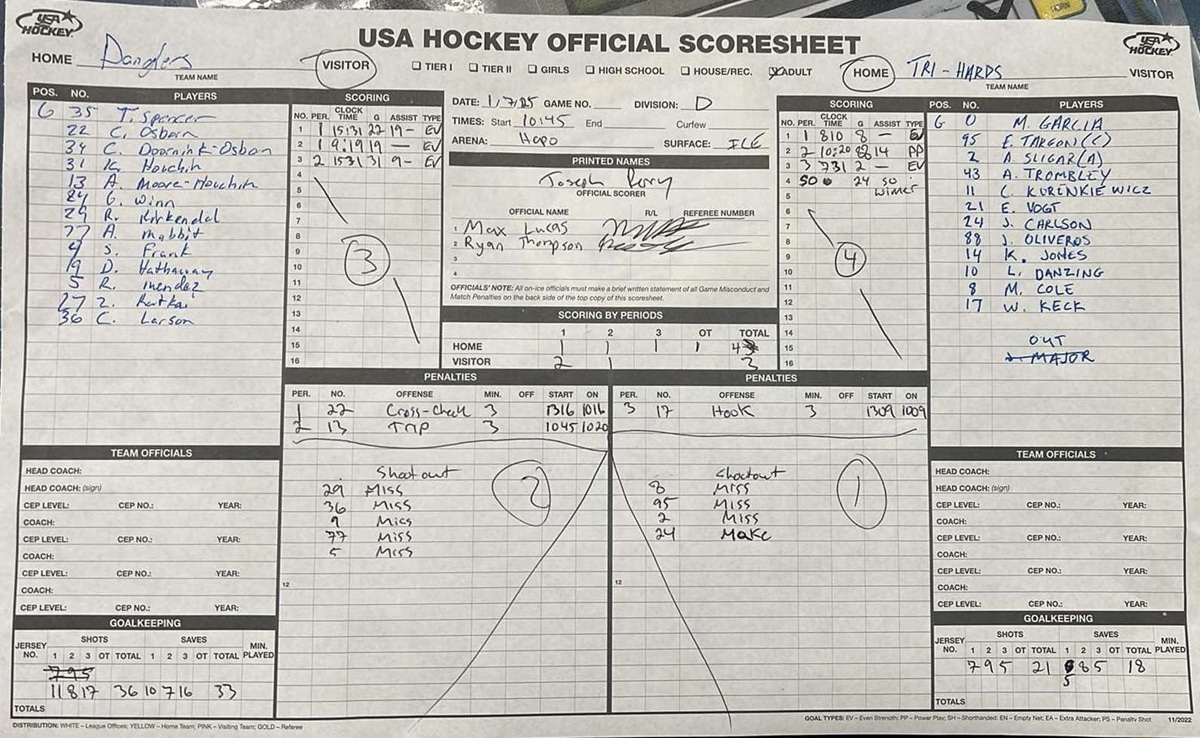 USA HOCKEY
USA HOCKEY OFFICIAL SCORESHEET
USA HOCKEY
HOME Danglers VISITOR
TEAM NAME
☐ TIER I ☐ TIER II ☐ GIRLS ☐ HIGH SCHOOL ☐ HOUSE/REC. ☒ ADULT
HOME TRI-HARDS VISITOR
TEAM NAME
POS. NO. PLAYERS
G 35 T. Spencer
22 C. Osborn
34 C. Doornink-Osborn
31 K. Houchin
13 A. Moore-Houchin
84 G. Winn
29 R. Kirkendal
77 A. Mabbit
4 S. Frank
19 D. Hathaway
5 R. Mendez
27 Z. Ratkai
36 C. Larson
SCORING
NO. PER. CLOCK TIME G ASSIST TYPE
1 1 15:31 22 19 - EV
2 1 9:19 19 - EV
3 2 1531 31 9 - EV
4
5
6
7
8
9
10
11
12
13
14
15
16
3
DATE: 1/7/25 GAME NO. DIVISION: D
TIMES: Start 10:45 End Curfew
ARENA: Hopo SURFACE: ICE
PRINTED NAMES
Joseph Perry
OFFICIAL SCORER
OFFICIAL NAME R/L REFEREE NUMBER
1 Max Lucas
2 Ryan Thompson
3
4
OFFICIALS' NOTE: All on-ice officials must make a brief written statement of all Game Misconduct and
Match Penalties on the back side of the top copy of this scoresheet.
SCORING BY PERIODS
1 2 3 OT TOTAL
HOME 1 1 1 1 4
VISITOR 2 1 3
SCORING
NO. PER. CLOCK TIME G ASSIST TYPE
1 1 810 8 - EV
2 2 10:20 88 14 PP
3 3 731 2 - EV
4 SO 0 24 SO
Winner
5
6
7
8
9
10
11
12
13
14
15
16
4
POS. NO. PLAYERS
G 0 M. GARCIA
95 E. TARGON (C)
2 A. SLIGAR (A)
43 A. TROMBLEY
11 C. KURENKIEWICZ
21 E. VOGT
24 J. CARLSON
88 J. OLIVEROS
14 K. JONES
10 L. DANZING
8 M. COLE
17 W. KECK
OUT
MAJOR
PENALTIES
PER. NO. OFFENSE MIN. OFF START ON
1 22 Cross-Check 3 1316 1016
2 13 Trip 3 1045 1020
Shootout
29 Miss
36 Miss
9 Miss
77 Miss
5 Miss
2
12
PENALTIES
PER. NO. OFFENSE MIN. OFF START ON
3 17 Hook 3 1309 1009
Shootout
8 Miss
95 Miss
2 Miss
24 Make
1
12
TEAM OFFICIALS
HEAD COACH:
HEAD COACH: (sign)
CEP LEVEL: CEP NO.: YEAR:
COACH:
CEP LEVEL: CEP NO.: YEAR:
COACH:
CEP LEVEL: CEP NO.: YEAR:
COACH:
CEP LEVEL: CEP NO.: YEAR:
GOALKEEPING
SHOTS SAVES
JERSEY NO. 1 2 3 OT TOTAL 1 2 3 OT TOTAL MIN. PLAYED
7 9 5
11 8 17 36 10 7 16 33
TOTALS
TEAM OFFICIALS
HEAD COACH:
HEAD COACH: (sign)
CEP LEVEL: CEP NO.: YEAR:
COACH:
CEP LEVEL: CEP NO.: YEAR:
COACH:
CEP LEVEL: CEP NO.: YEAR:
COACH:
CEP LEVEL: CEP NO.: YEAR:
GOALKEEPING
SHOTS SAVES
JERSEY NO. 1 2 3 OT TOTAL 1 2 3 OT TOTAL MIN. PLAYED
7 9 5 21 8 5 18
5
TOTALS
DISTRIBUTION: WHITE – League Offices; YELLOW – Home Team; PINK – Visiting Team; GOLD – Referee
GOAL TYPES: EV – Even Strength; PP – Power Play; SH – Shorthanded; EN – Empty Net; EA – Extra Attacker; PS – Penalty Shot 11/2022